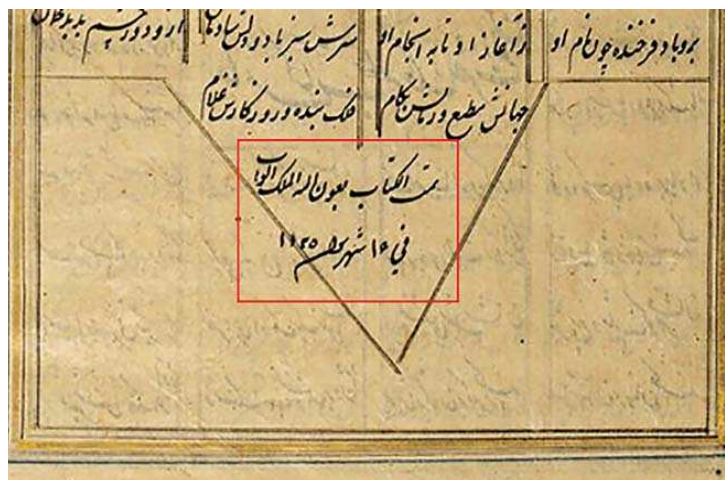 برو باد فرخنده چون نام او ز آغاز او تا به انجام او سرش سبز باد و دلش شادمان از و دور چشم بد بدگمان
جهانش مطیع و زمانش بکام فلک بنده و روزگارش غلام
تمت الکتاب بعون الله الملک الوهاب
فی ۱۶ شهر ۱۱۲۵